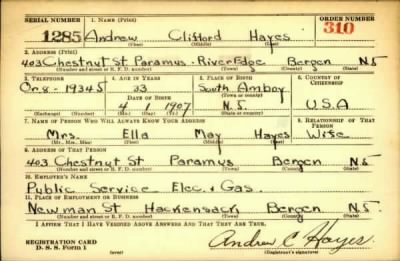 SERIAL NUMBER 1. NAME (Print) ORDER NUMBER
1285 Andrew Clifford Hayes 310
(First) (Middle) (Last)
2. ADDRESS (Print)
403 Chestnut St. Paramus - River Edge Bergen N.J.
(Number and street or R. F. D. number) (Town) (County) (State)
3. TELEPHONE 4. AGE IN YEARS 5. PLACE OF BIRTH 6. COUNTRY OF CITIZENSHIP
Or. 8 - 1934J 33 South Amboy
DATE OF BIRTH (Town or county)
4 1 1907 N.J. U.S.A
(Exchange) (Number) (Mo.) (Day) (Yr.) (State or country)
7. NAME OF PERSON WHO WILL ALWAYS KNOW YOUR ADDRESS 8. RELATIONSHIP OF THAT PERSON
Mrs. Ella May Hayes Wife
(Mr., Mrs., Miss) (First) (Middle) (Last)
9. ADDRESS OF THAT PERSON
403 Chestnut St Paramus Bergen N.J.
(Number and street or R. F. D. number) (Town) (County) (State)
10. EMPLOYER'S NAME
Public Service Elec. & Gas.
11. PLACE OF EMPLOYMENT OR BUSINESS
Newman St Hackensack Bergen N.J.
(Number and street or R. F. D. number) (Town) (County) (State)
I AFFIRM THAT I HAVE VERIFIED ABOVE ANSWERS AND THAT THEY ARE TRUE.
REGISTRATION CARD
D. S. S. Form 1 (over) Andrew C Hayes
(Registrant's signature)